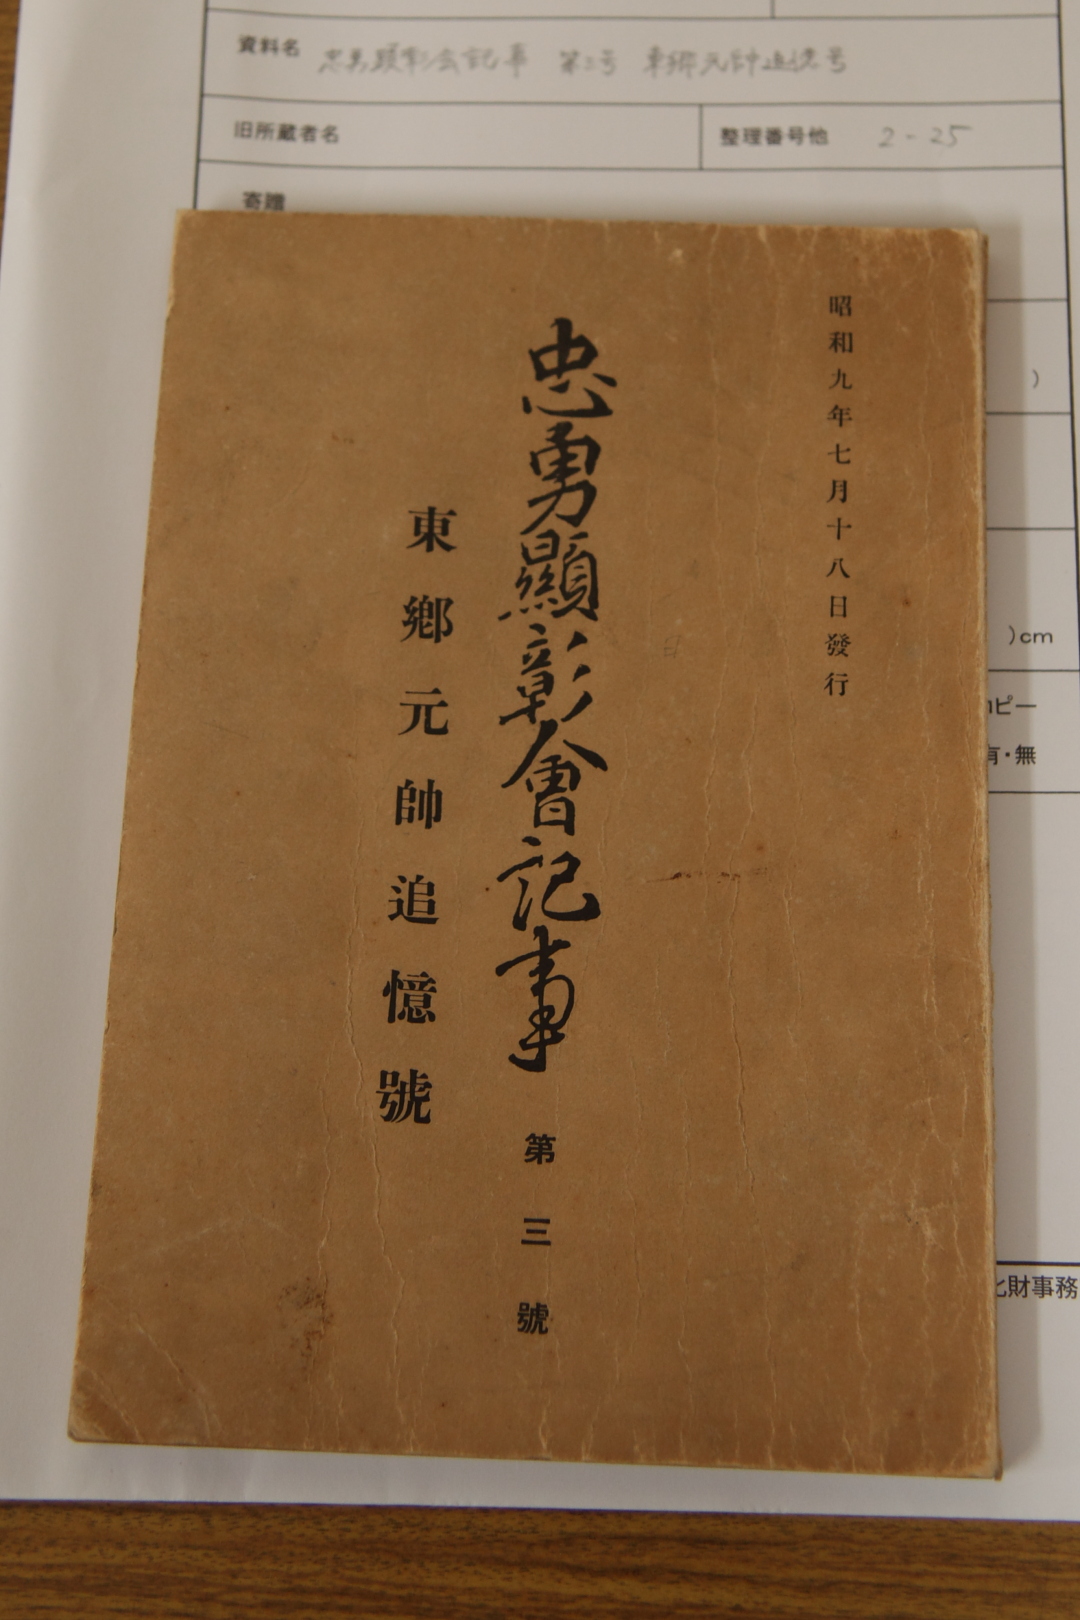 資料名 忠勇顕彰会記事 第三号 東郷元帥追憶号
旧所蔵者名
整理番号他 2-25
寄贈
昭和九年七月十八日發行
忠勇顯彰會記事 第三號
東鄉元帥追憶號
)
)cm
コピー
有・無
化財事務